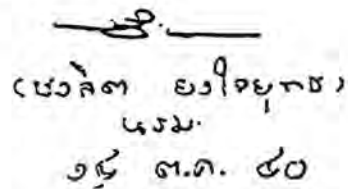 (ชวลิต ยงใจยุทธ)
นรม.
๑๔ ต.ค. ๔๐